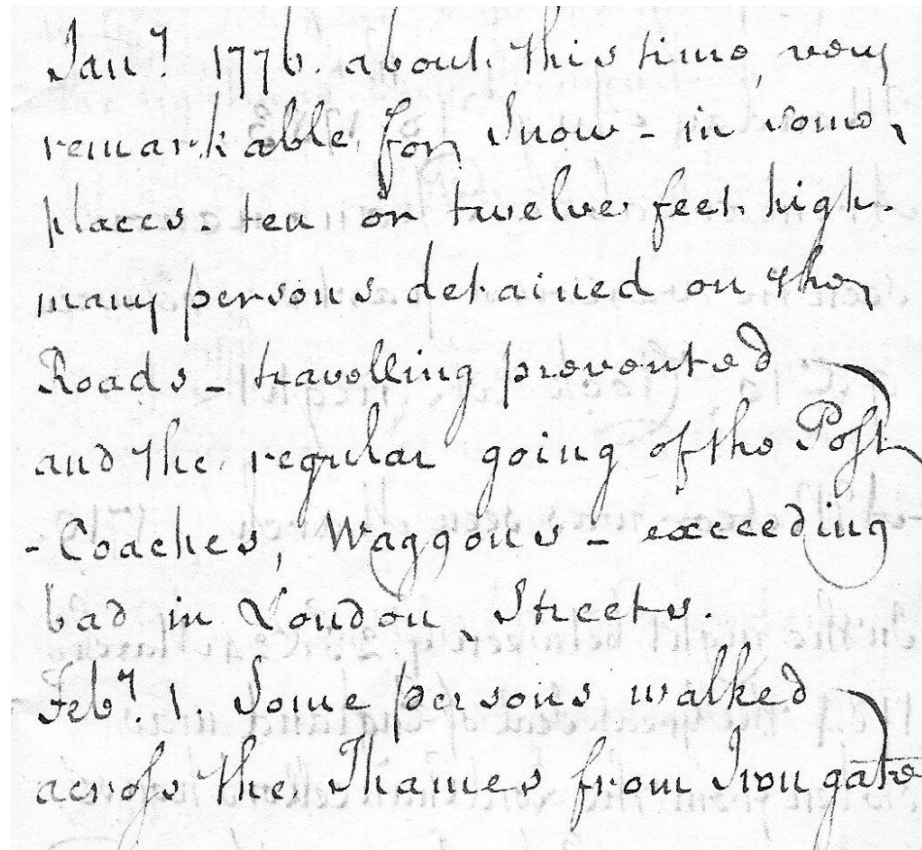 Jany. 1776. about this time, very
remarkable for Snow - in some
places - ten or twelve feet high.
many persons detained on the
Roads - travelling prevented
and the regular going of the Post
- Coaches, Waggons - exceeding
bad in London Streets.
Feby. 1. Some persons walked
across the Thames from Iron gate